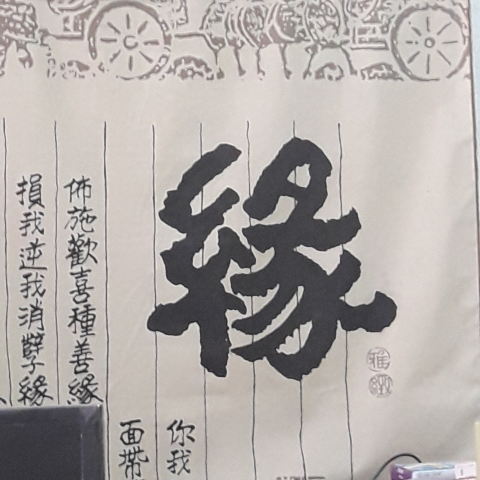 緣
你我
面帶
佈施歡喜種善緣
損我逆我消孽緣